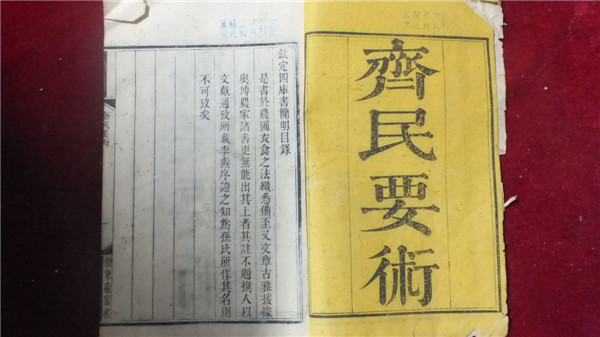 齊民要術
欽定四庫書簡明目錄
是書於農圃衣食之法纖悉備至又文章古雅援據
奥博農家諸書更無能出其上者其註不題撰人以
文獻通攷所載李燾序證之知爲孫氏所作其名則
不可攷矣